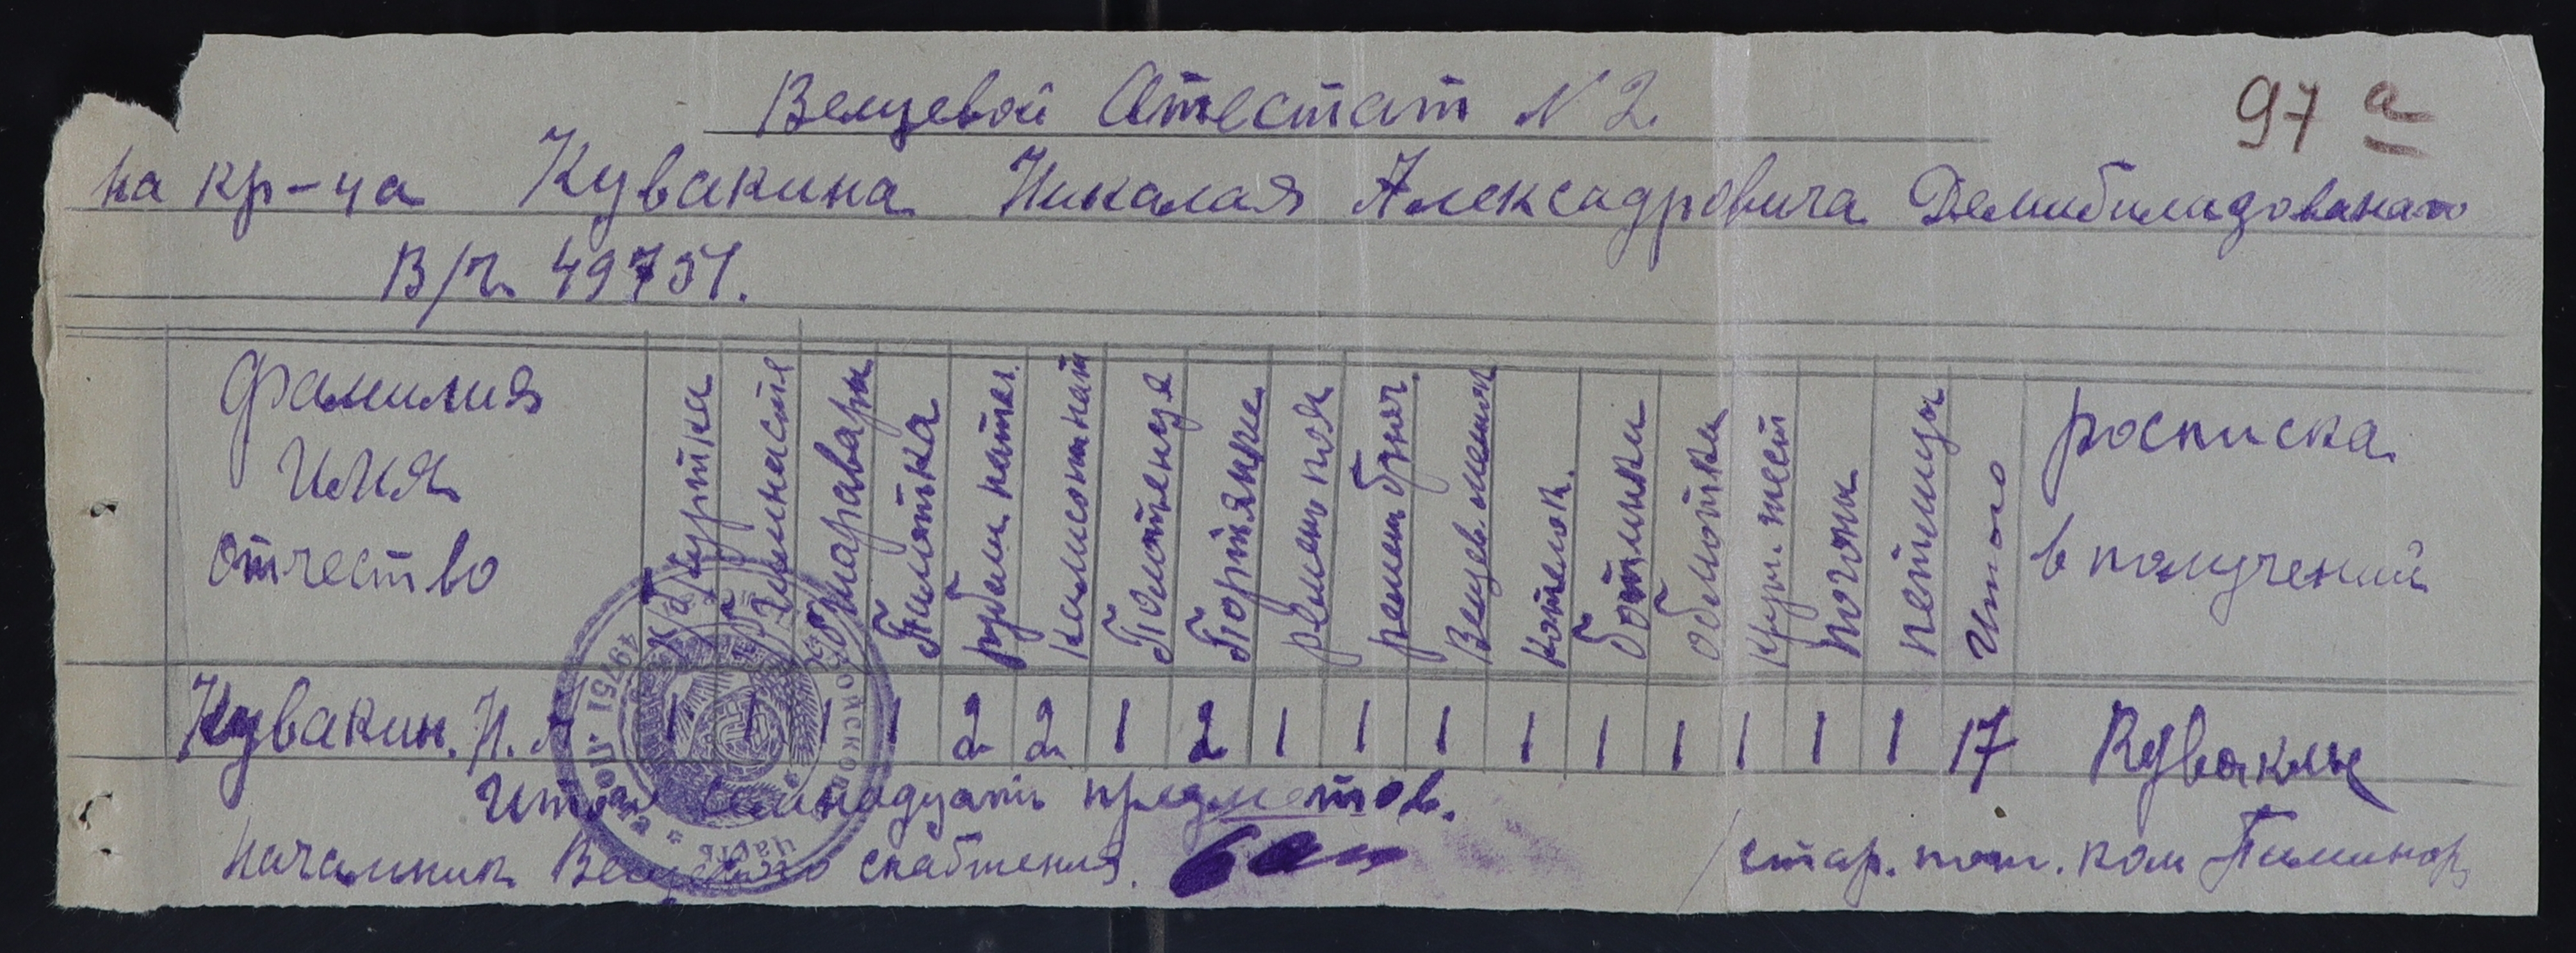 Вещевой Атестат N 2.
97 а
на кр-ца Кувакина Николая Алексадровича Демибилидованого
В/ч. 49751.
Фамилия
Имя
Отчество
Куртка
Гимнастя
Шаравары
Пилотка
рубаш. нател.
Полотенця
Портянке
ремень пояс
ремень брюч.
Вещев. мешок
котелок.
Ботинки
обмотки
погоны
петлицы
итого
росписка
в получений
Кувакин. Н. А. 1 1 1 1 2 2 1 2 1 1 1 1 1 1 1 1 1 17 Кувакин
Итого семнадцать предметов.
Начальник Вещевого снабжения.
стар. пом. ком
49751